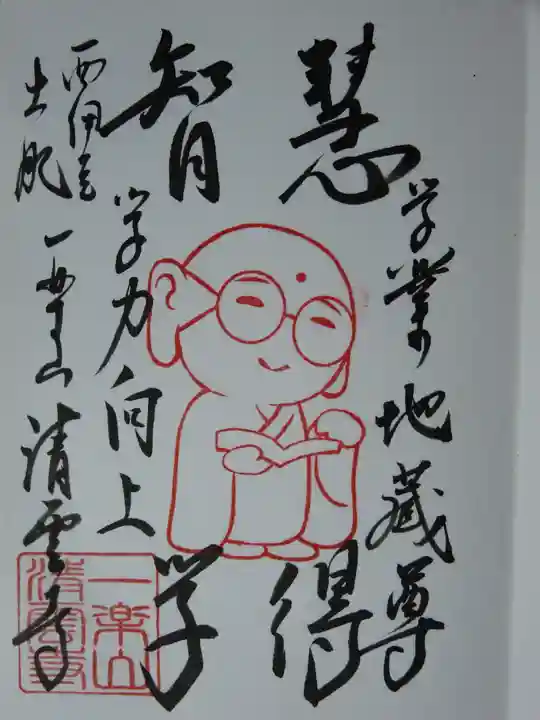 学業地蔵尊
慧得
智学
学力向上
西伊豆
土肥
一楽山 清雲寺
一楽山
清雲寺